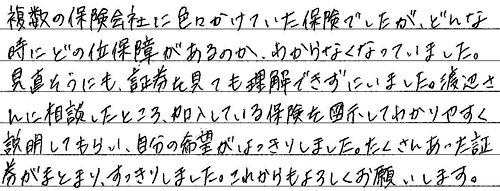 複数の保険会社に色々かけていた保険でしたが、どんな
時にどの位保障があるのか、わからなくなっていました。
見直そうにも、証券を見ても理解できずにいました。渡辺さ
んに相談したところ、加入している保険を図示してわかりやすく
説明してもらい、自分の希望がはっきりしました。たくさんあった証
券がまとまり、すっきりしました。これからもよろしくお願いします。